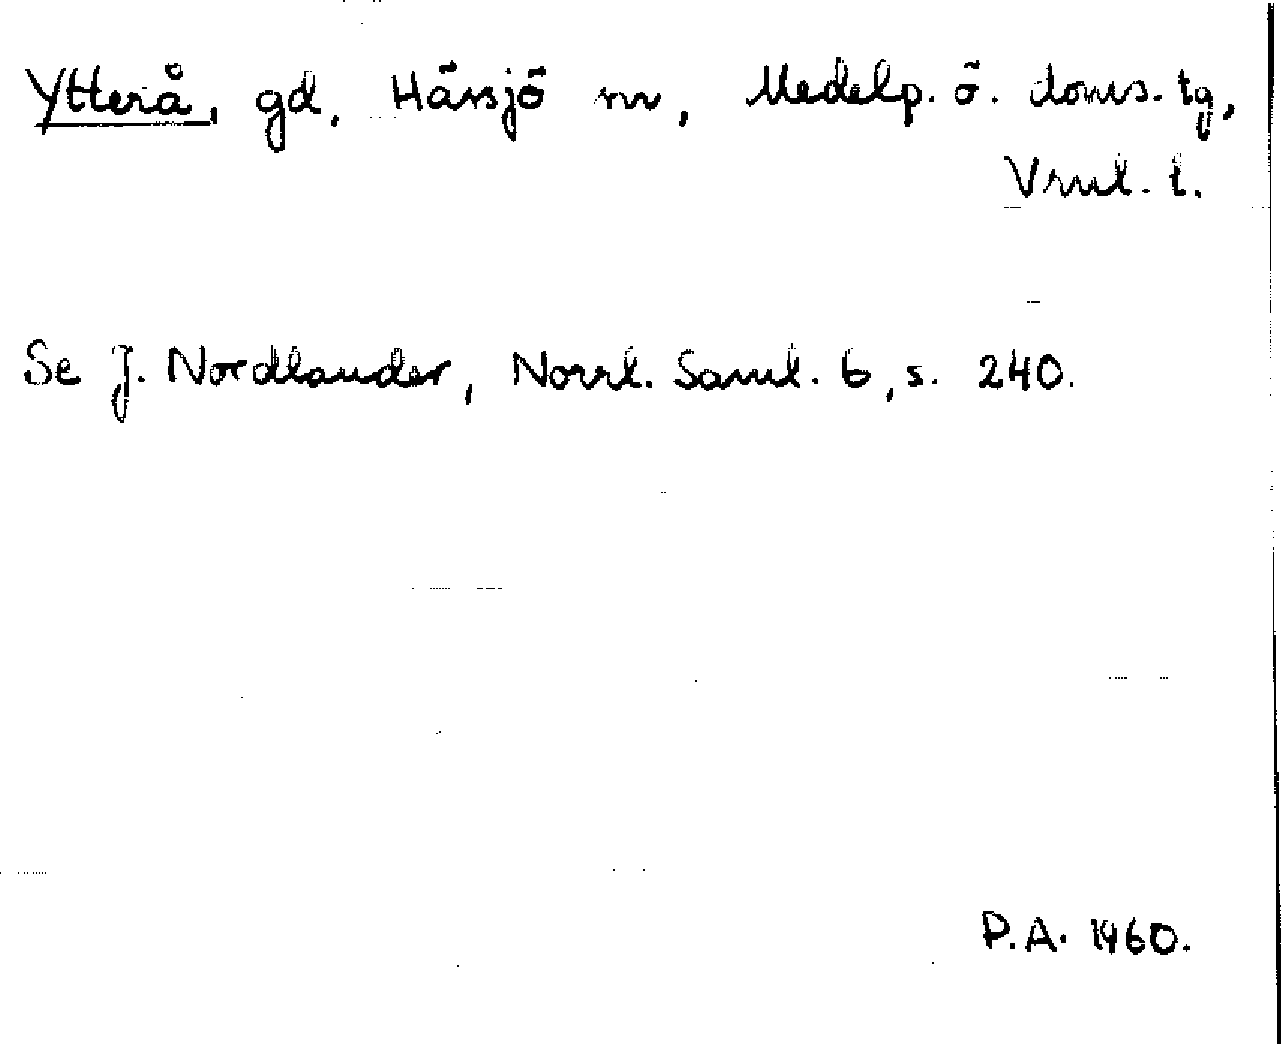 Ytterå, gd, Hässjö sn, Medelp. ö. doms. tg,
Vrnl. l.
Se J. Nordlander, Norrl. Saml. 6, s. 240.
P.A. 1960.